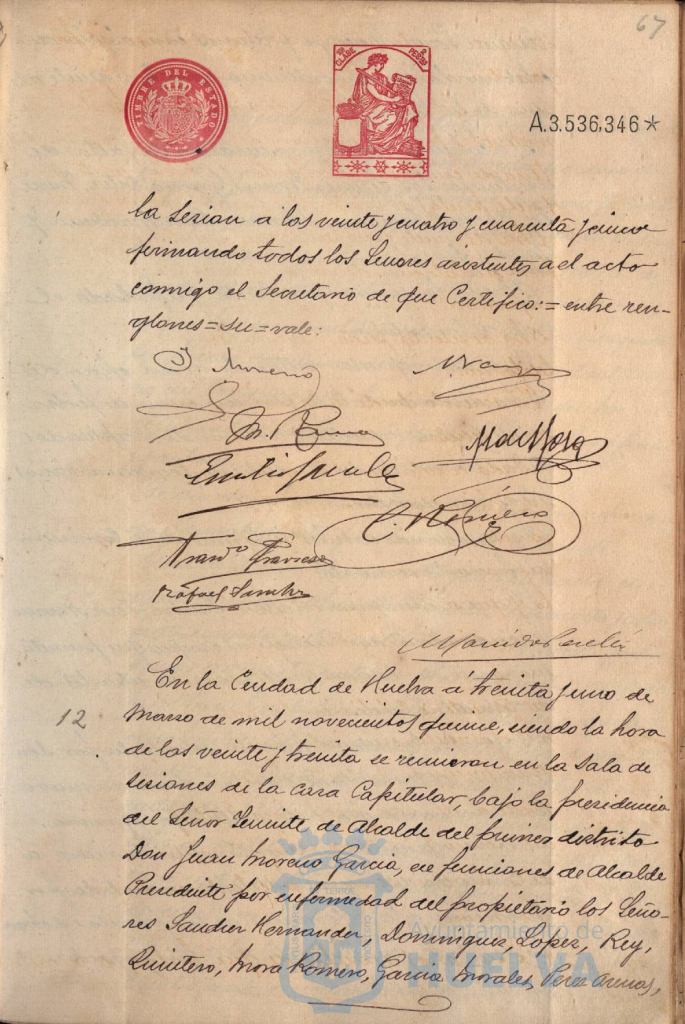 67
TIMBRE DEL ESTADO
CLASE
PESETAS
A.3.536.346*
la Sesion a los veinte y cuatro y cuarenta y cinco
firmando todos los Señores asistentes a el acto
conmigo el Secretario de que Certifico:= entre ren-
glones=su=vale:
J Moreno
M de Mora
C. Romero
Rafael Sanchz
En la Ciudad de Huelva á treinta y uno de
12
Marzo de mil novecientos quince, siendo la hora
de las veinte y treinta se reunieron en la Sala de
sesiones de la casa Capitular, bajo la presidencia
del Señor Teniente de Alcalde del primer distrito
Don Juan Moreno Garcia, en funciones de Alcalde
Presidente por enfermedad del propietario los Seño-
res Sanchez Hernandez, Dominguez, Lopez, Rey,
Quintero, Mora Romero, Garcia Morales, Perez Arenas,
Ayuntamiento de
HUELVA